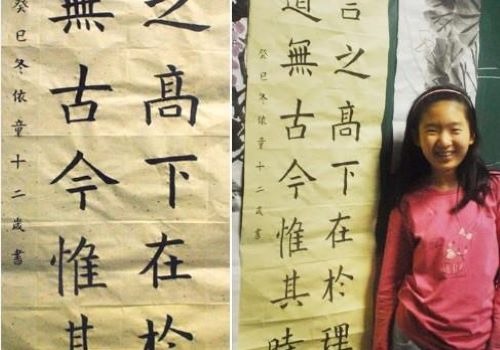 之高下在於
無古今惟其
癸巳冬依童十二歲書
言之高下在於理
道無古今惟其時
癸巳冬依童十二歲書